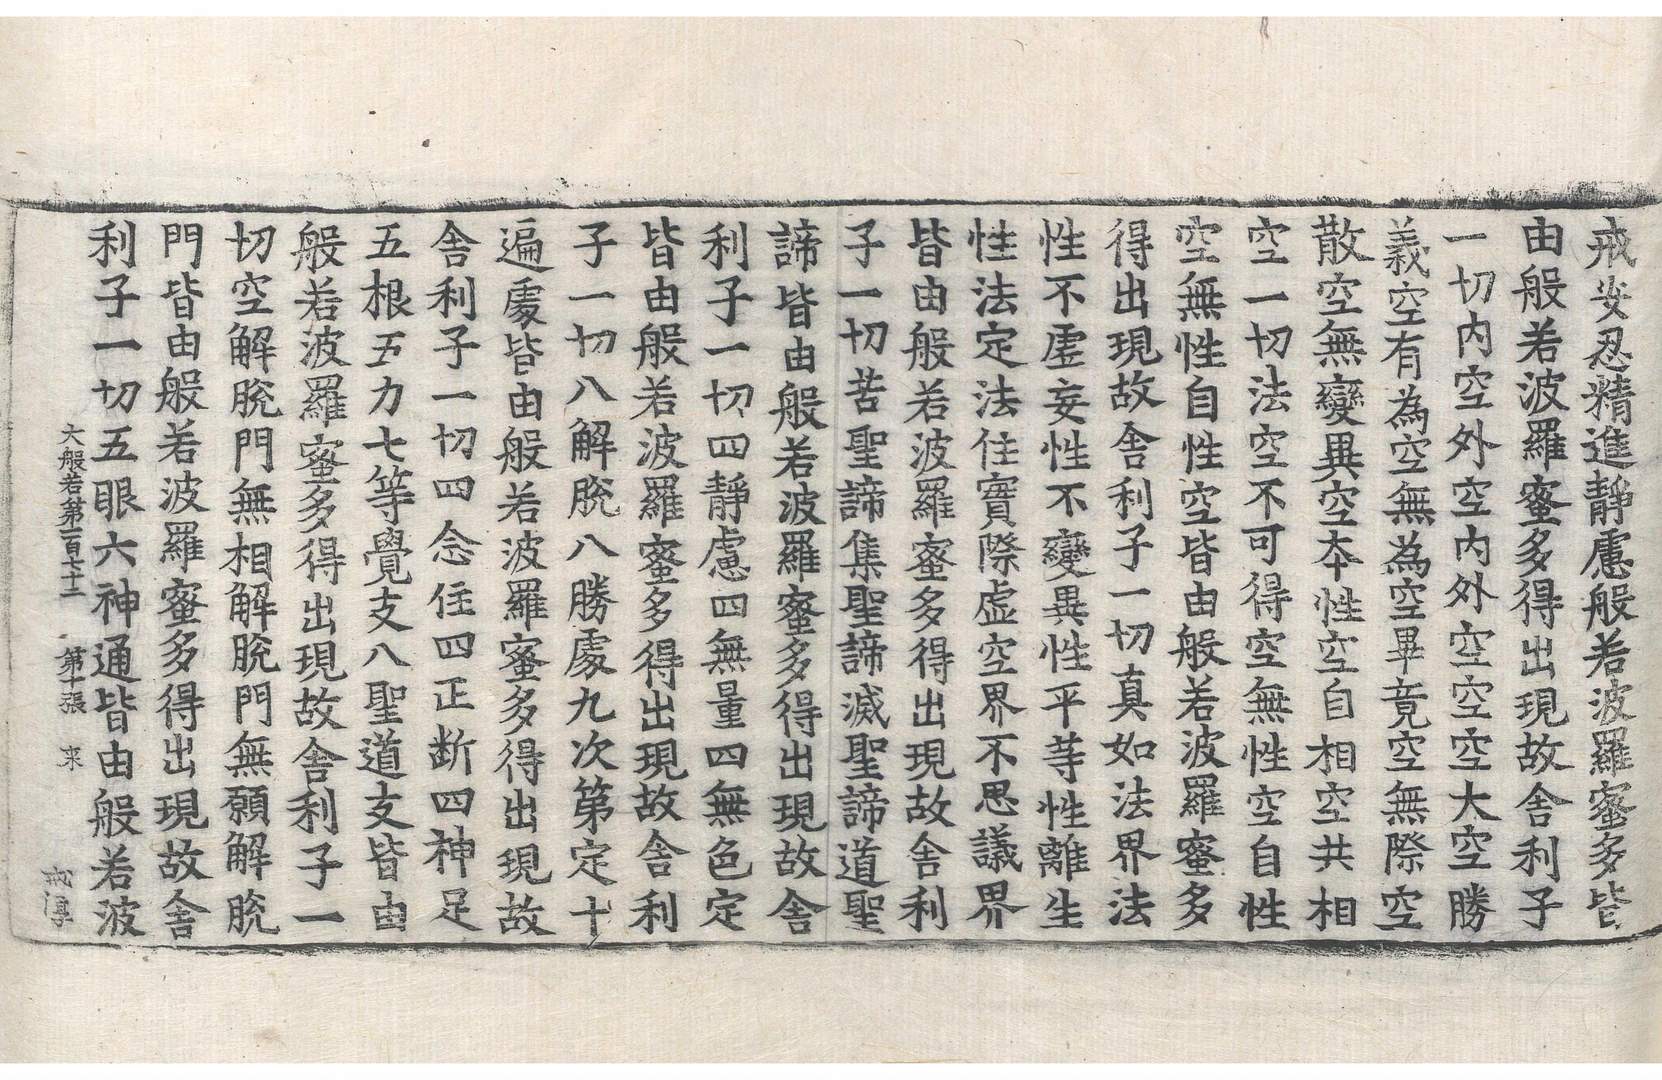 戒安忍精進靜慮般若波羅蜜多皆
由般若波羅蜜多得出現故舍利子
一切內空外空內外空空空大空勝
義空有為空無為空畢竟空無際空
散空無變異空本性空自相空共相
空一切法空不可得空無性空自性
空無性自性空皆由般若波羅蜜多
得出現故舍利子一切真如法界法
性不虛妄性不變異性平等性離生
性法定法住實際虛空界不思議界
皆由般若波羅蜜多得出現故舍利
子一切苦聖諦集聖諦滅聖諦道聖
諦皆由般若波羅蜜多得出現故舍
利子一切四靜慮四無量四無色定
皆由般若波羅蜜多得出現故舍利
子一切八解脫八勝處九次第定十
遍處皆由般若波羅蜜多得出現故
舍利子一切四念住四正斷四神足
五根五力七等覺支八聖道支皆由
般若波羅蜜多得出現故舍利子一
切空解脫門無相解脫門無願解脫
門皆由般若波羅蜜多得出現故舍
利子一切五眼六神通皆由般若波
大般若第一百七十二 第十張 来
戒淳